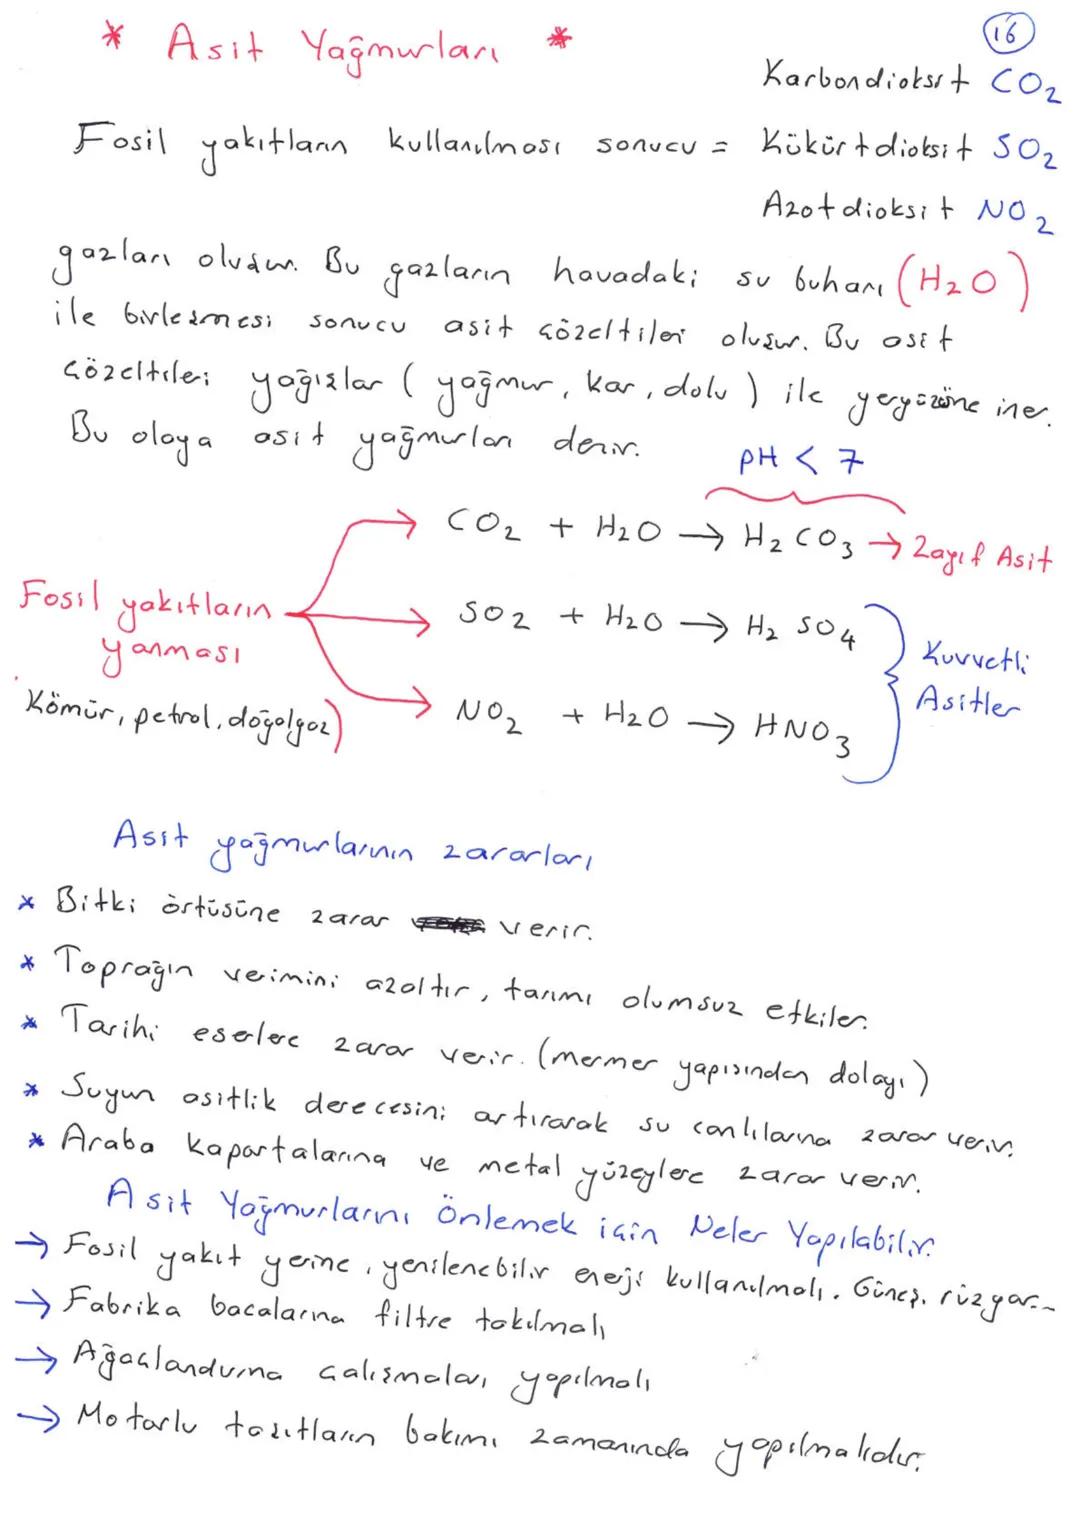 * Asit Yağmurları *
16
Karbondioksit CO2
Fosil yakıtların kullanılması sonucu = Kükürtdioksit SO2
Azotdioksit NO2
gazları oluşur. Bu gazların havadaki su buharı (H2O)
ile birleşmesi sonucu asit çözeltileri oluşur. Bu asit
çözeltileri yağışlar (yağmur, kar, dolu) ile yeryüzüne iner.
Bu olaya asit yağmurları denir.
pH < 7
CO2 + H2O → H2CO3 → Zayıf Asit
Fosil yakıtların
yanması
SO2 + H2O → H2SO4
Kuvvetli
Asitler
Kömür, petrol, doğalgaz)
NO2 + H2O → HNO3
Asit yağmurlarının zararları
* Bitki örtüsüne zarar verir.
* Toprağın verimini azaltır, tarımı olumsuz etkiler.
* Tarihi eserlere zarar verir. (mermer yapısından dolayı)
* Suyun asitlik derecesini artırarak su canlılarına zarar verir.
* Araba kaportalarına ve metal yüzeylere zarar verir.
Asit Yağmurlarını Önlemek için Neler Yapılabilir.
→ Fosil yakıt yerine, yenilenebilir enerji kullanılmalı. Güneş, rüzgar...
→ Fabrika bacalarına filtre takılmalı
→ Ağaçlandırma çalışmaları yapılmalı
→ Motorlu taşıtların bakımı zamanında yapılmalıdır.